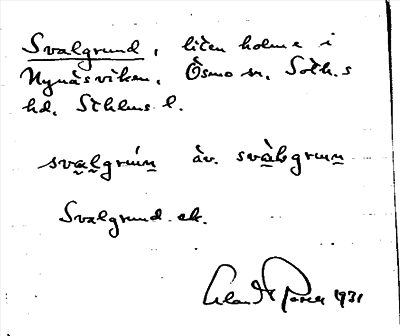 Svalgrund, liten holme i
Nynäsviken, Ösmo sn, Soth.s
hd, Sthlms l.
svalgrún̠ äv. svàlsgrun̠
Svalgrund ek.
1931